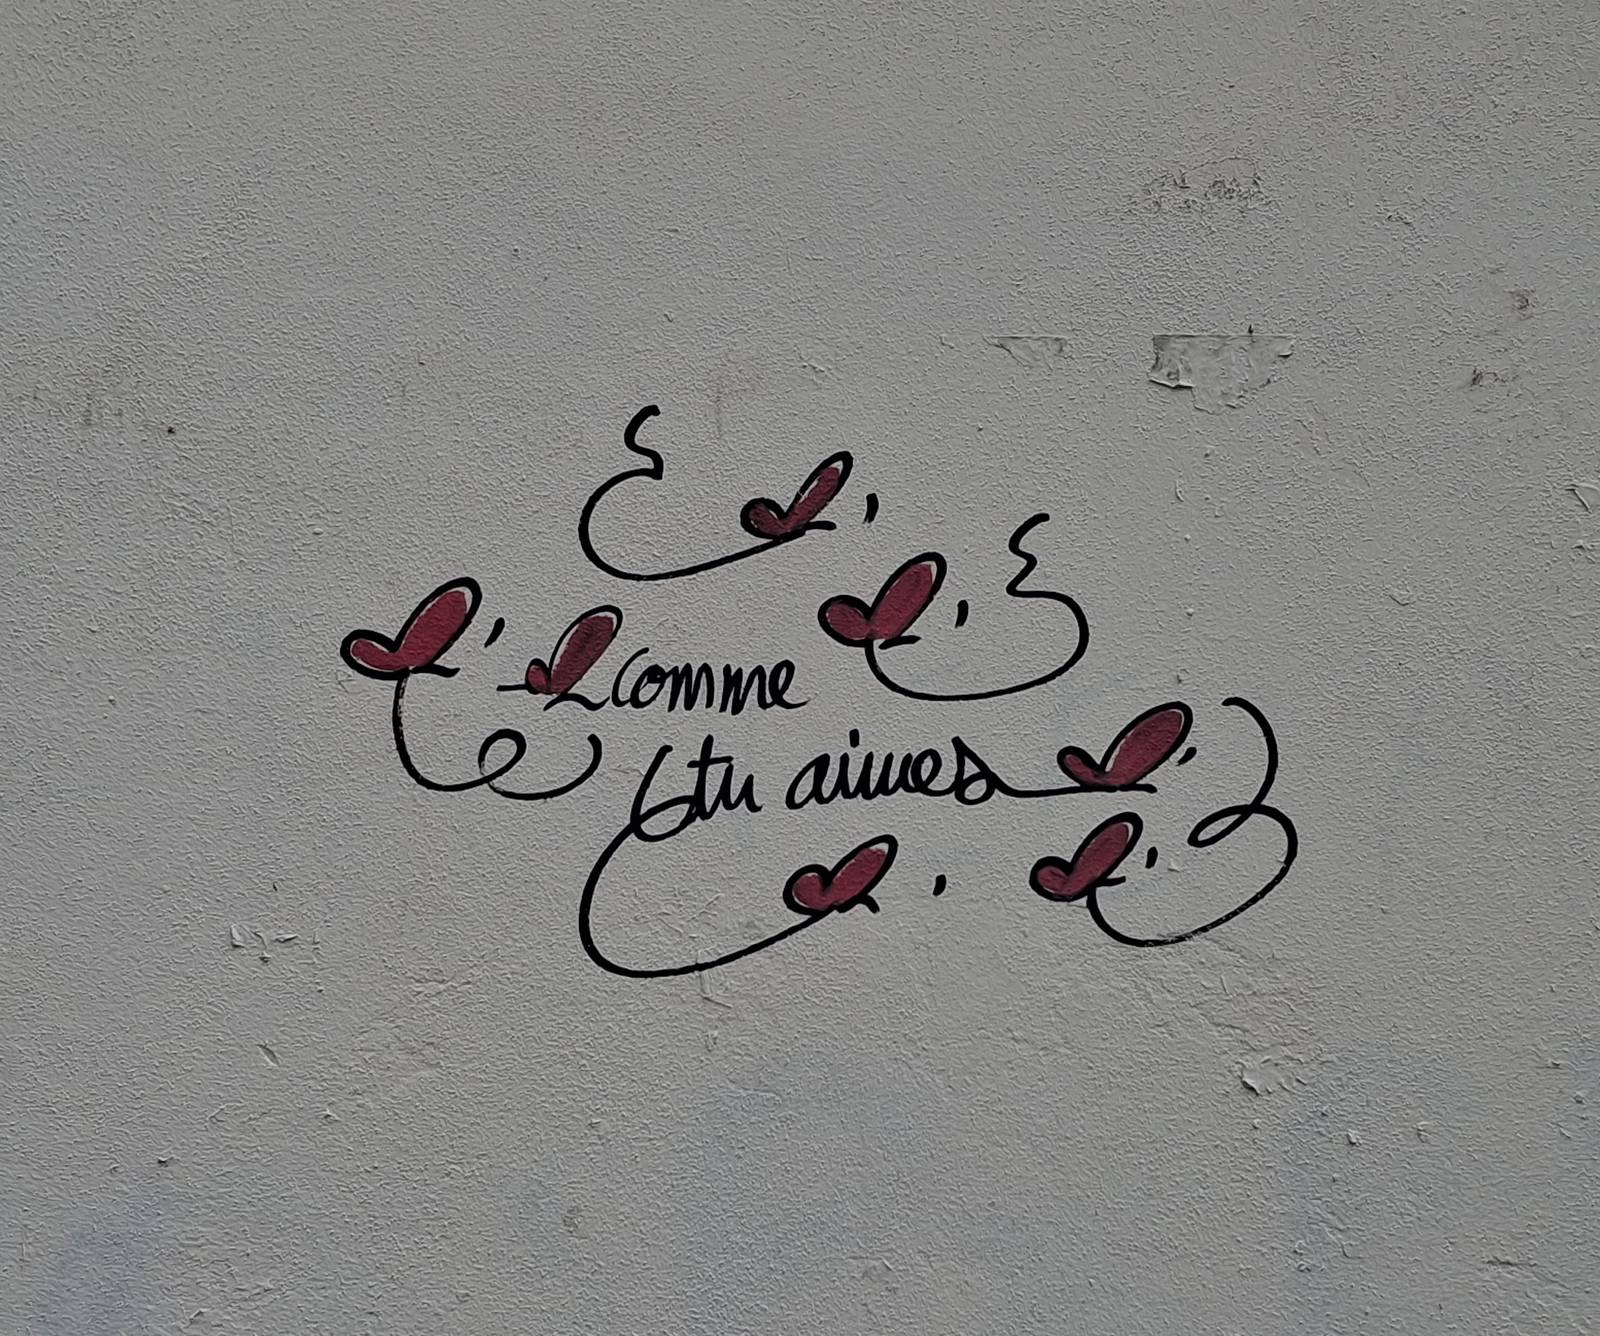 comme
tu aimes